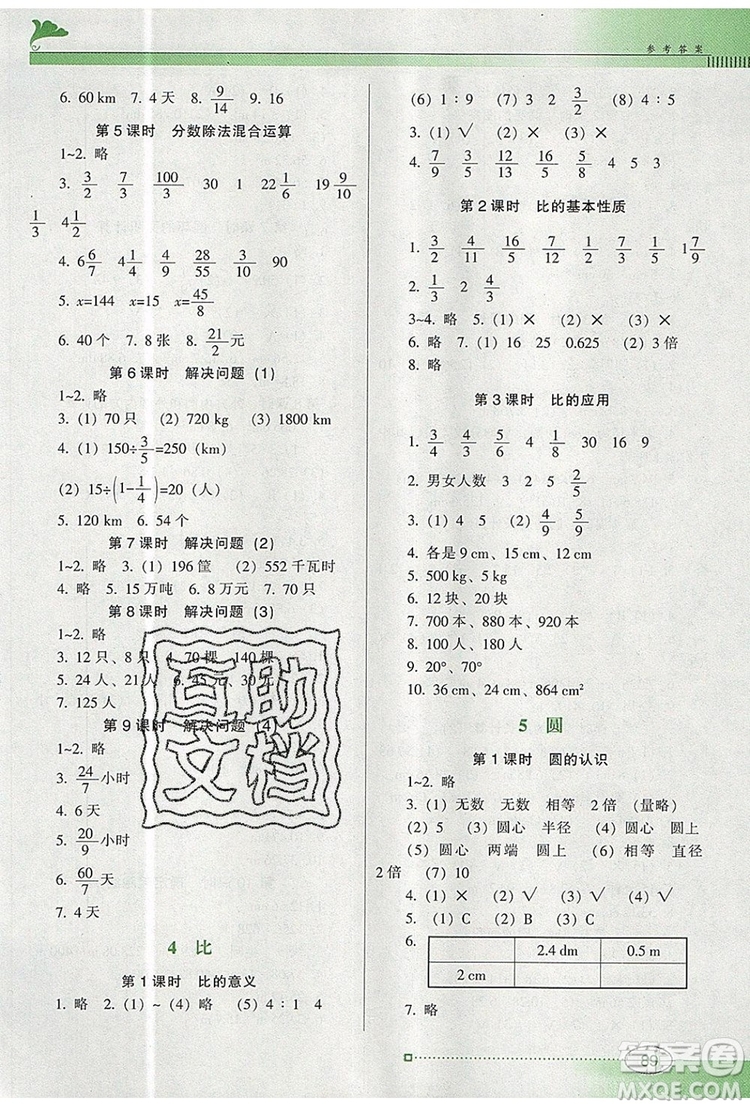 参考答案
6. 60 km 7. 4天 8. 9/14 9. 16
第5课时 分数除法混合运算
1~2. 略
3. 3/2 7/3 100/3 30 1 22 1/6 19 9/10
1/3 4 1/2
4. 6 6/7 4 4/7 29/30 3/10
5. x=144 x=15 x=45/8
6. 40个 7. 8张 8. 21/2元
第6课时 解决问题 (1)
1~2. 略
3. (1) 70只 (2) 720 kg (3) 1800 km
4. (1) 150÷3/5=250 (km)
(2) 15÷(1-1/4)=20 (人)
5. 120 km 6. 54个
第7课时 解决问题 (2)
1~2. 略 3. (1) 196筐 (2) 552千瓦时
4. 略 5. 15万吨 6. 8万元 7. 50元
第8课时 解决问题 (3)
1~2. 略
3. 12只、8只 4. 70棵 140棵
5. 24人、21人 6. 45元 30元
7. 125人
第9课时 解决问题 (4)
1~2. 略
3. 24/7小时
4. 6天
5. 20/9小时
6. 60/7天
7. 4天
4 比
第1课时 比的意义
1. 略 2. (1) ~ (4) 略 (5) 4∶1 4
(6) 1∶9 (7) 3 2 3/2 (8) 4∶5
3. (1) √ (2) ×
4. 7/9 3/16 12/13 16/15 5/8 7/9
第2课时 比的基本性质
1. 3/2 4/9 16/11 7/2 7/8 1 7/9
2. 1/3 2/3
3~4. 略 5. (1) × (2) × (3) ×
6. 略 7. (1) 16 25 0.625 (2) 3倍
8. 略
第3课时 比的应用
1. 3/4 4/3 3/7 4/7 1/8 30 16 9
2. 男女人数 3 2 5 2/5
3. (1) 4 5 (2) 4/9 5/9
4. 各是9 cm、15 cm、12 cm
5. 500 kg、5 kg
6. 12块、20块
7. 700本、880本、920本
8. 100人、180人
9. 20°、70°
10. 36 cm、24 cm、864 cm²
5 圆
第1课时 圆的认识
1~2. 略
3. (1) 无数 无数 相等 2倍 (量略)
(2) 5 (3) 圆心 半径 (4) 圆心 圆上
(5) 圆心 两端 圆上 (6) 相等 直径
2倍 (7) 10
4. (1) × (2) √ (3) √ (4) √
5. (1) C (2) B (3) C
6. 2.4 dm 0.5 m
2 cm
7. 略
互助
文档
89
答案圈
MXQE.COM